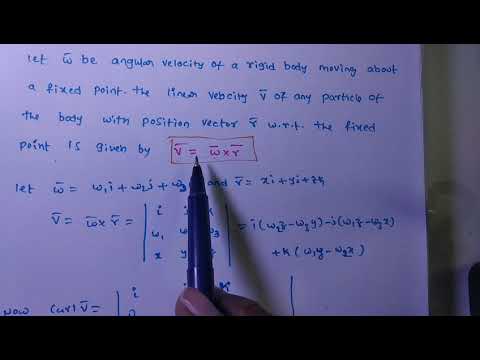 let ω̄ be angular velocity of a rigid body moving about
a fixed point. the linear velocity v̄ of any particle of
the body with position vector r̄ w.r.t. the fixed
point is given by v̄ = ω̄ x r̄
let ω̄ = ω₁i + ω₂j + ω₃ and r̄ = xi + yj + zk
v̄ = ω̄ x r̄ = | i j = i(ω₂z - ω₃y) - j(ω₁z - ω₃x)
ω₁ ω₃
x y + k(ω₁y - ω₂x)
Now curl v̄ = | i